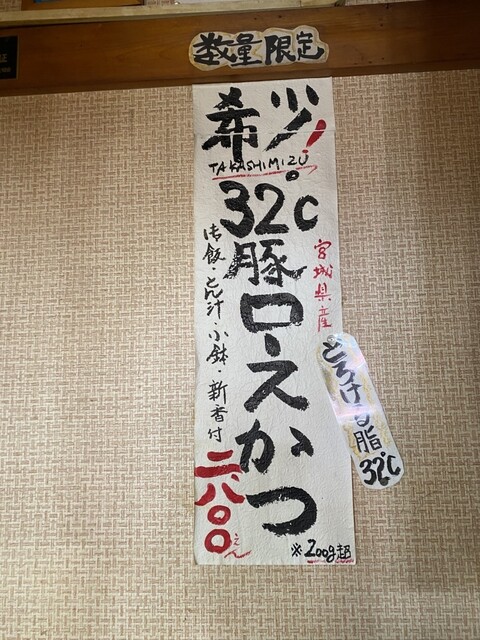 数量限定
希少!。
TAKASHIMIZU
32℃
豚ロースかつ
宮城県産
とろける脂
32℃
御飯・とん汁・小鉢・新香付
二、八〇〇えん
※200g超